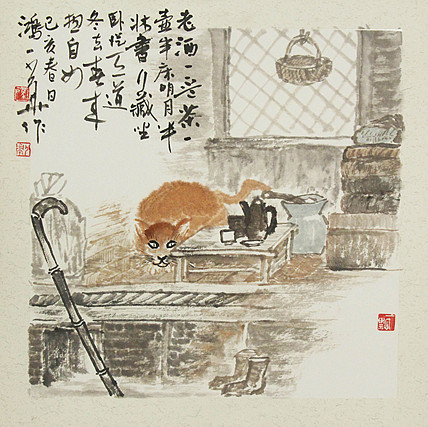 老酒一壶茶一
壶半床明月半
床书行藏坐
卧一道
冬去春来
自如
己亥春日
鸿一作